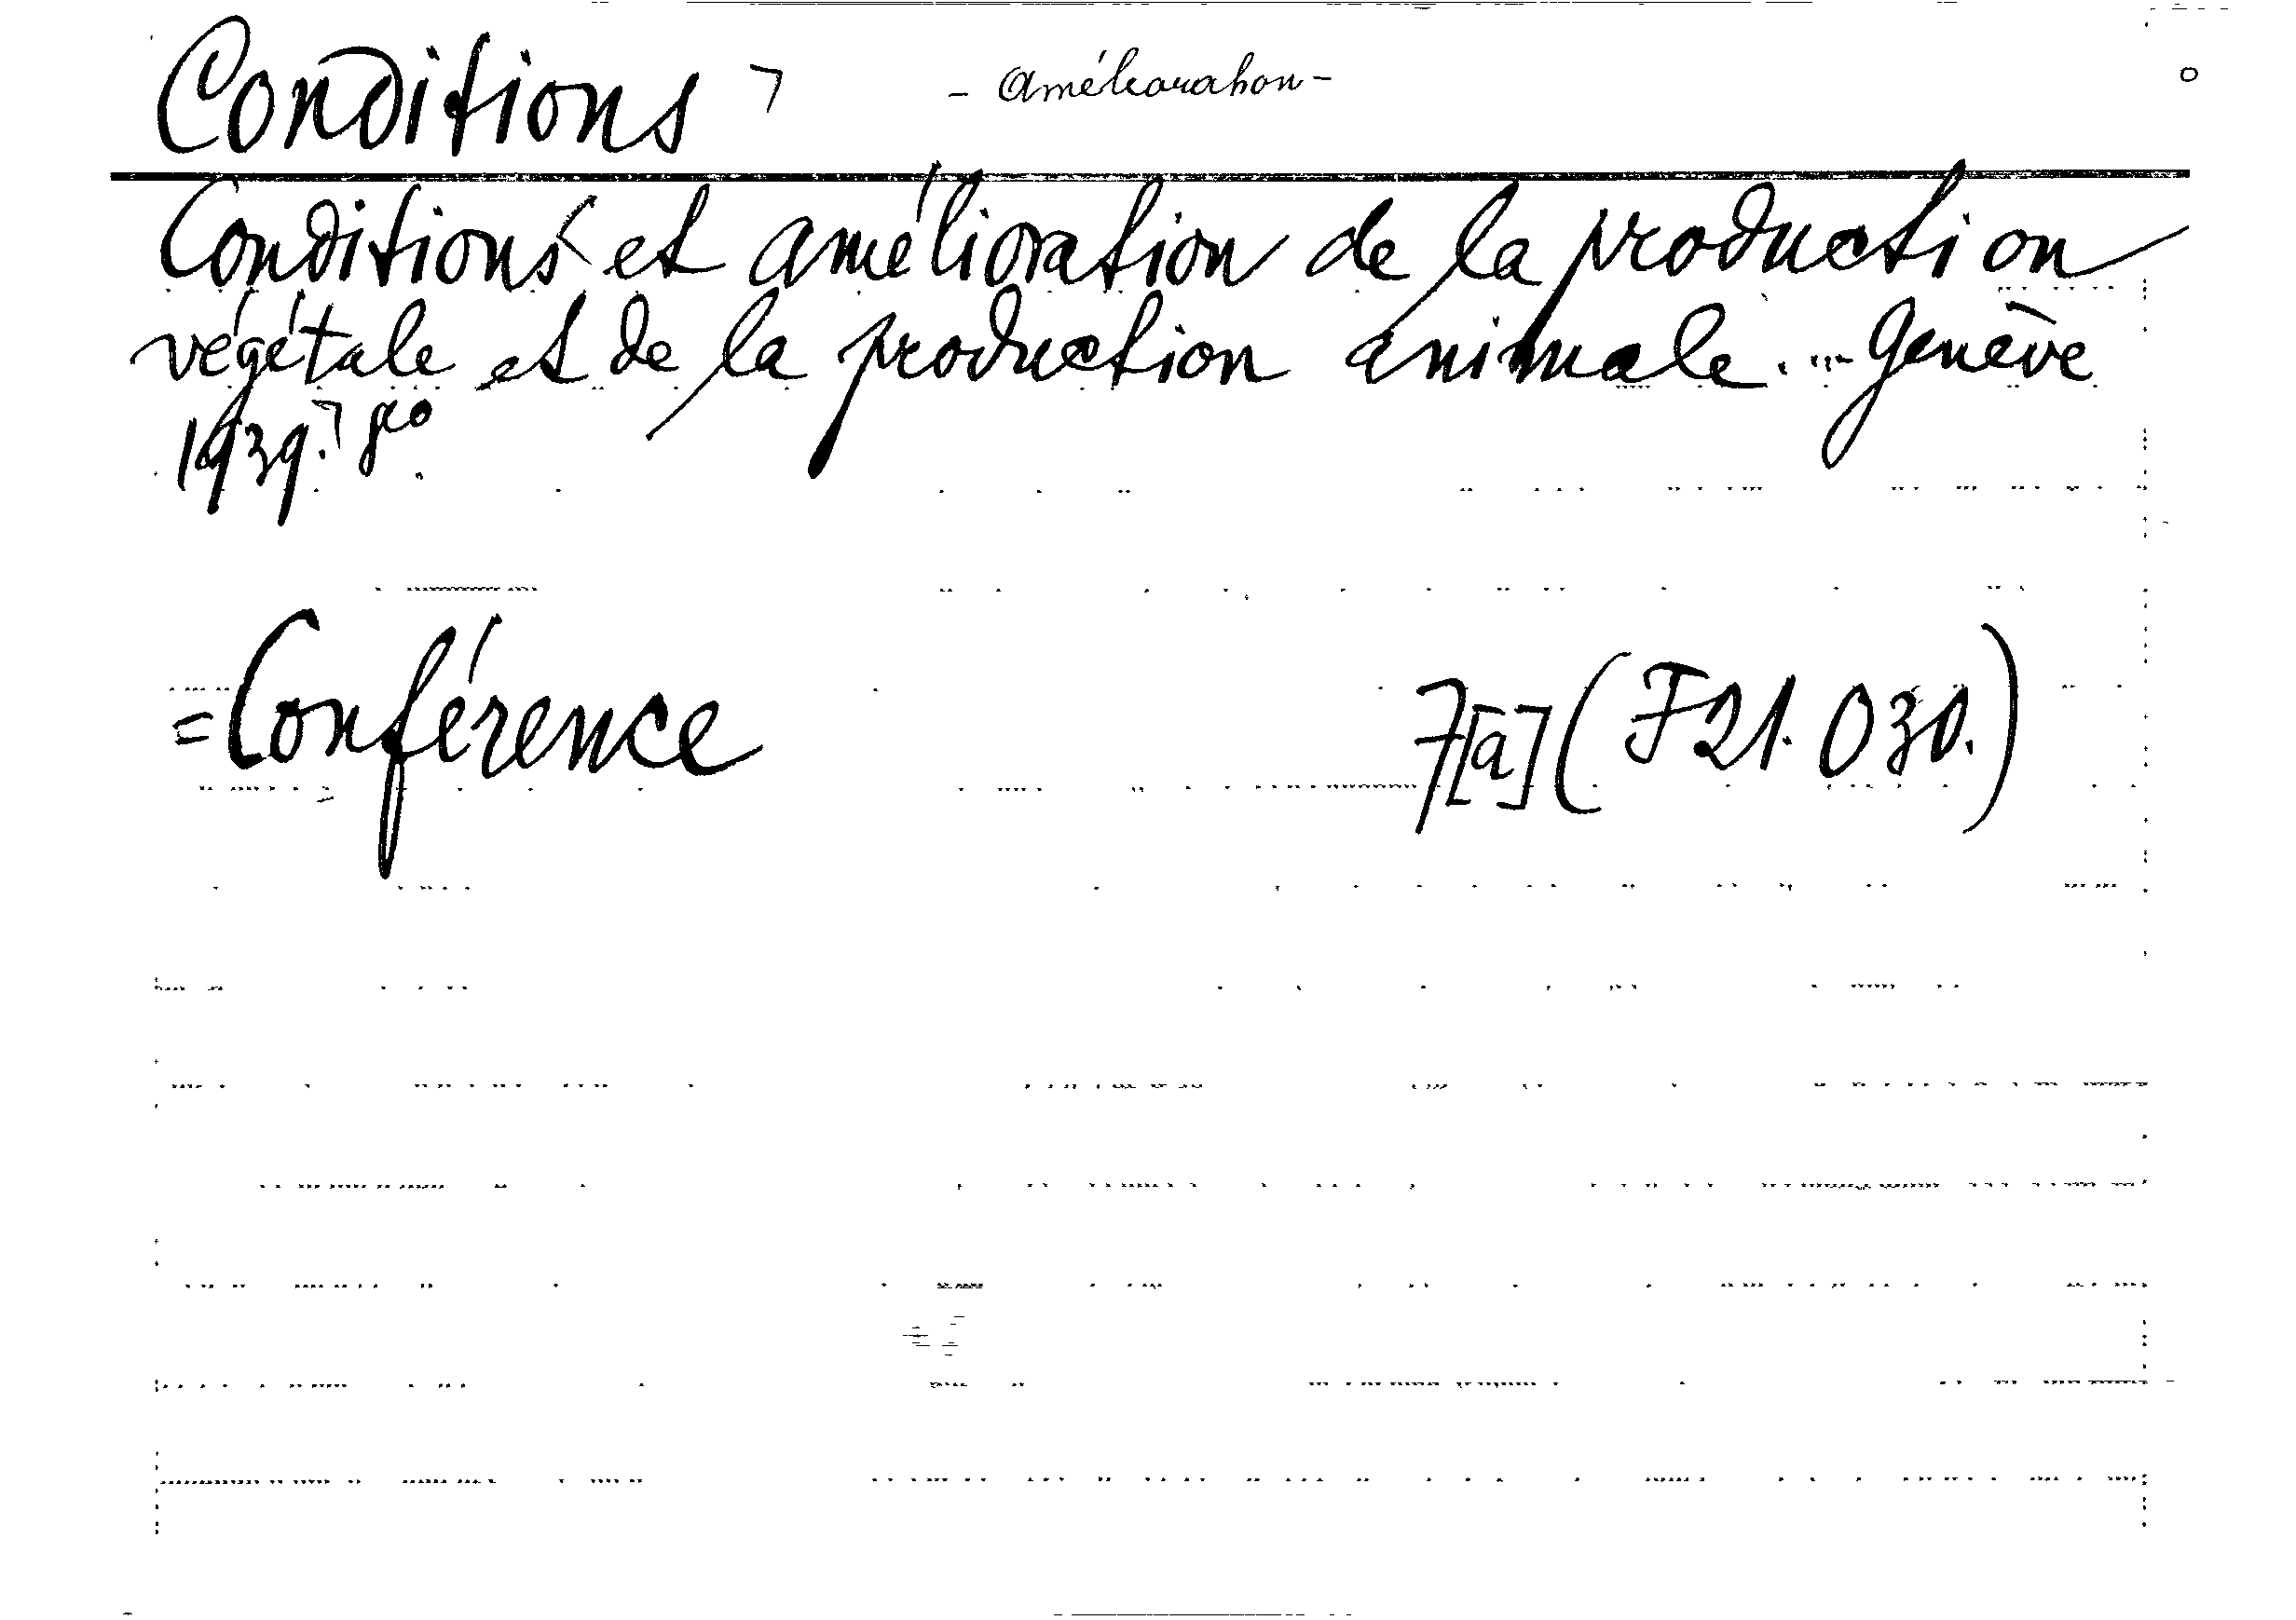 Conditions ⁊ - Amélioration -
Conditions et amélioration de la production
végétale et de la production animale. ... Genève
1939. ⁊ 8°
= Conférence 7[a] (F21.030.)